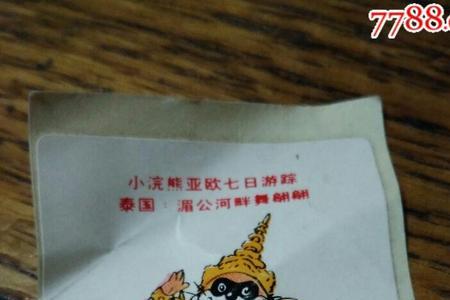 7788.c
小浣熊亚欧七日游踪
泰国：湄公河畔舞翩翩